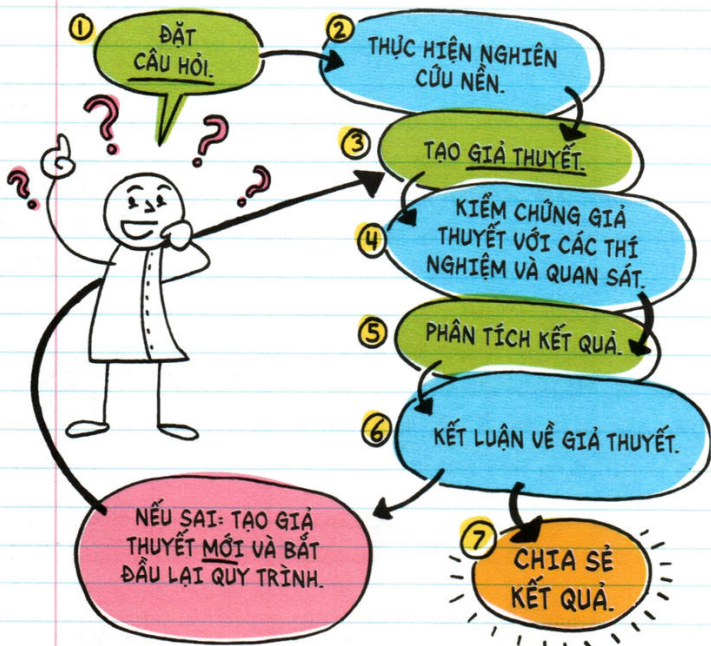 1
ĐẶT
CÂU HỎI.
2
THỰC HIỆN NGHIÊN
CỨU NỀN.
3
TẠO GIẢ THUYẾT.
4
KIỂM CHỨNG GIẢ
THUYẾT VỚI CÁC THÍ
NGHIỆM VÀ QUAN SÁT.
5
PHÂN TÍCH KẾT QUẢ.
6
KẾT LUẬN VỀ GIẢ THUYẾT.
NẾU SAI: TẠO GIẢ
THUYẾT MỚI VÀ BẮT
ĐẦU LẠI QUY TRÌNH.
7
CHIA SẺ
KẾT QUẢ.